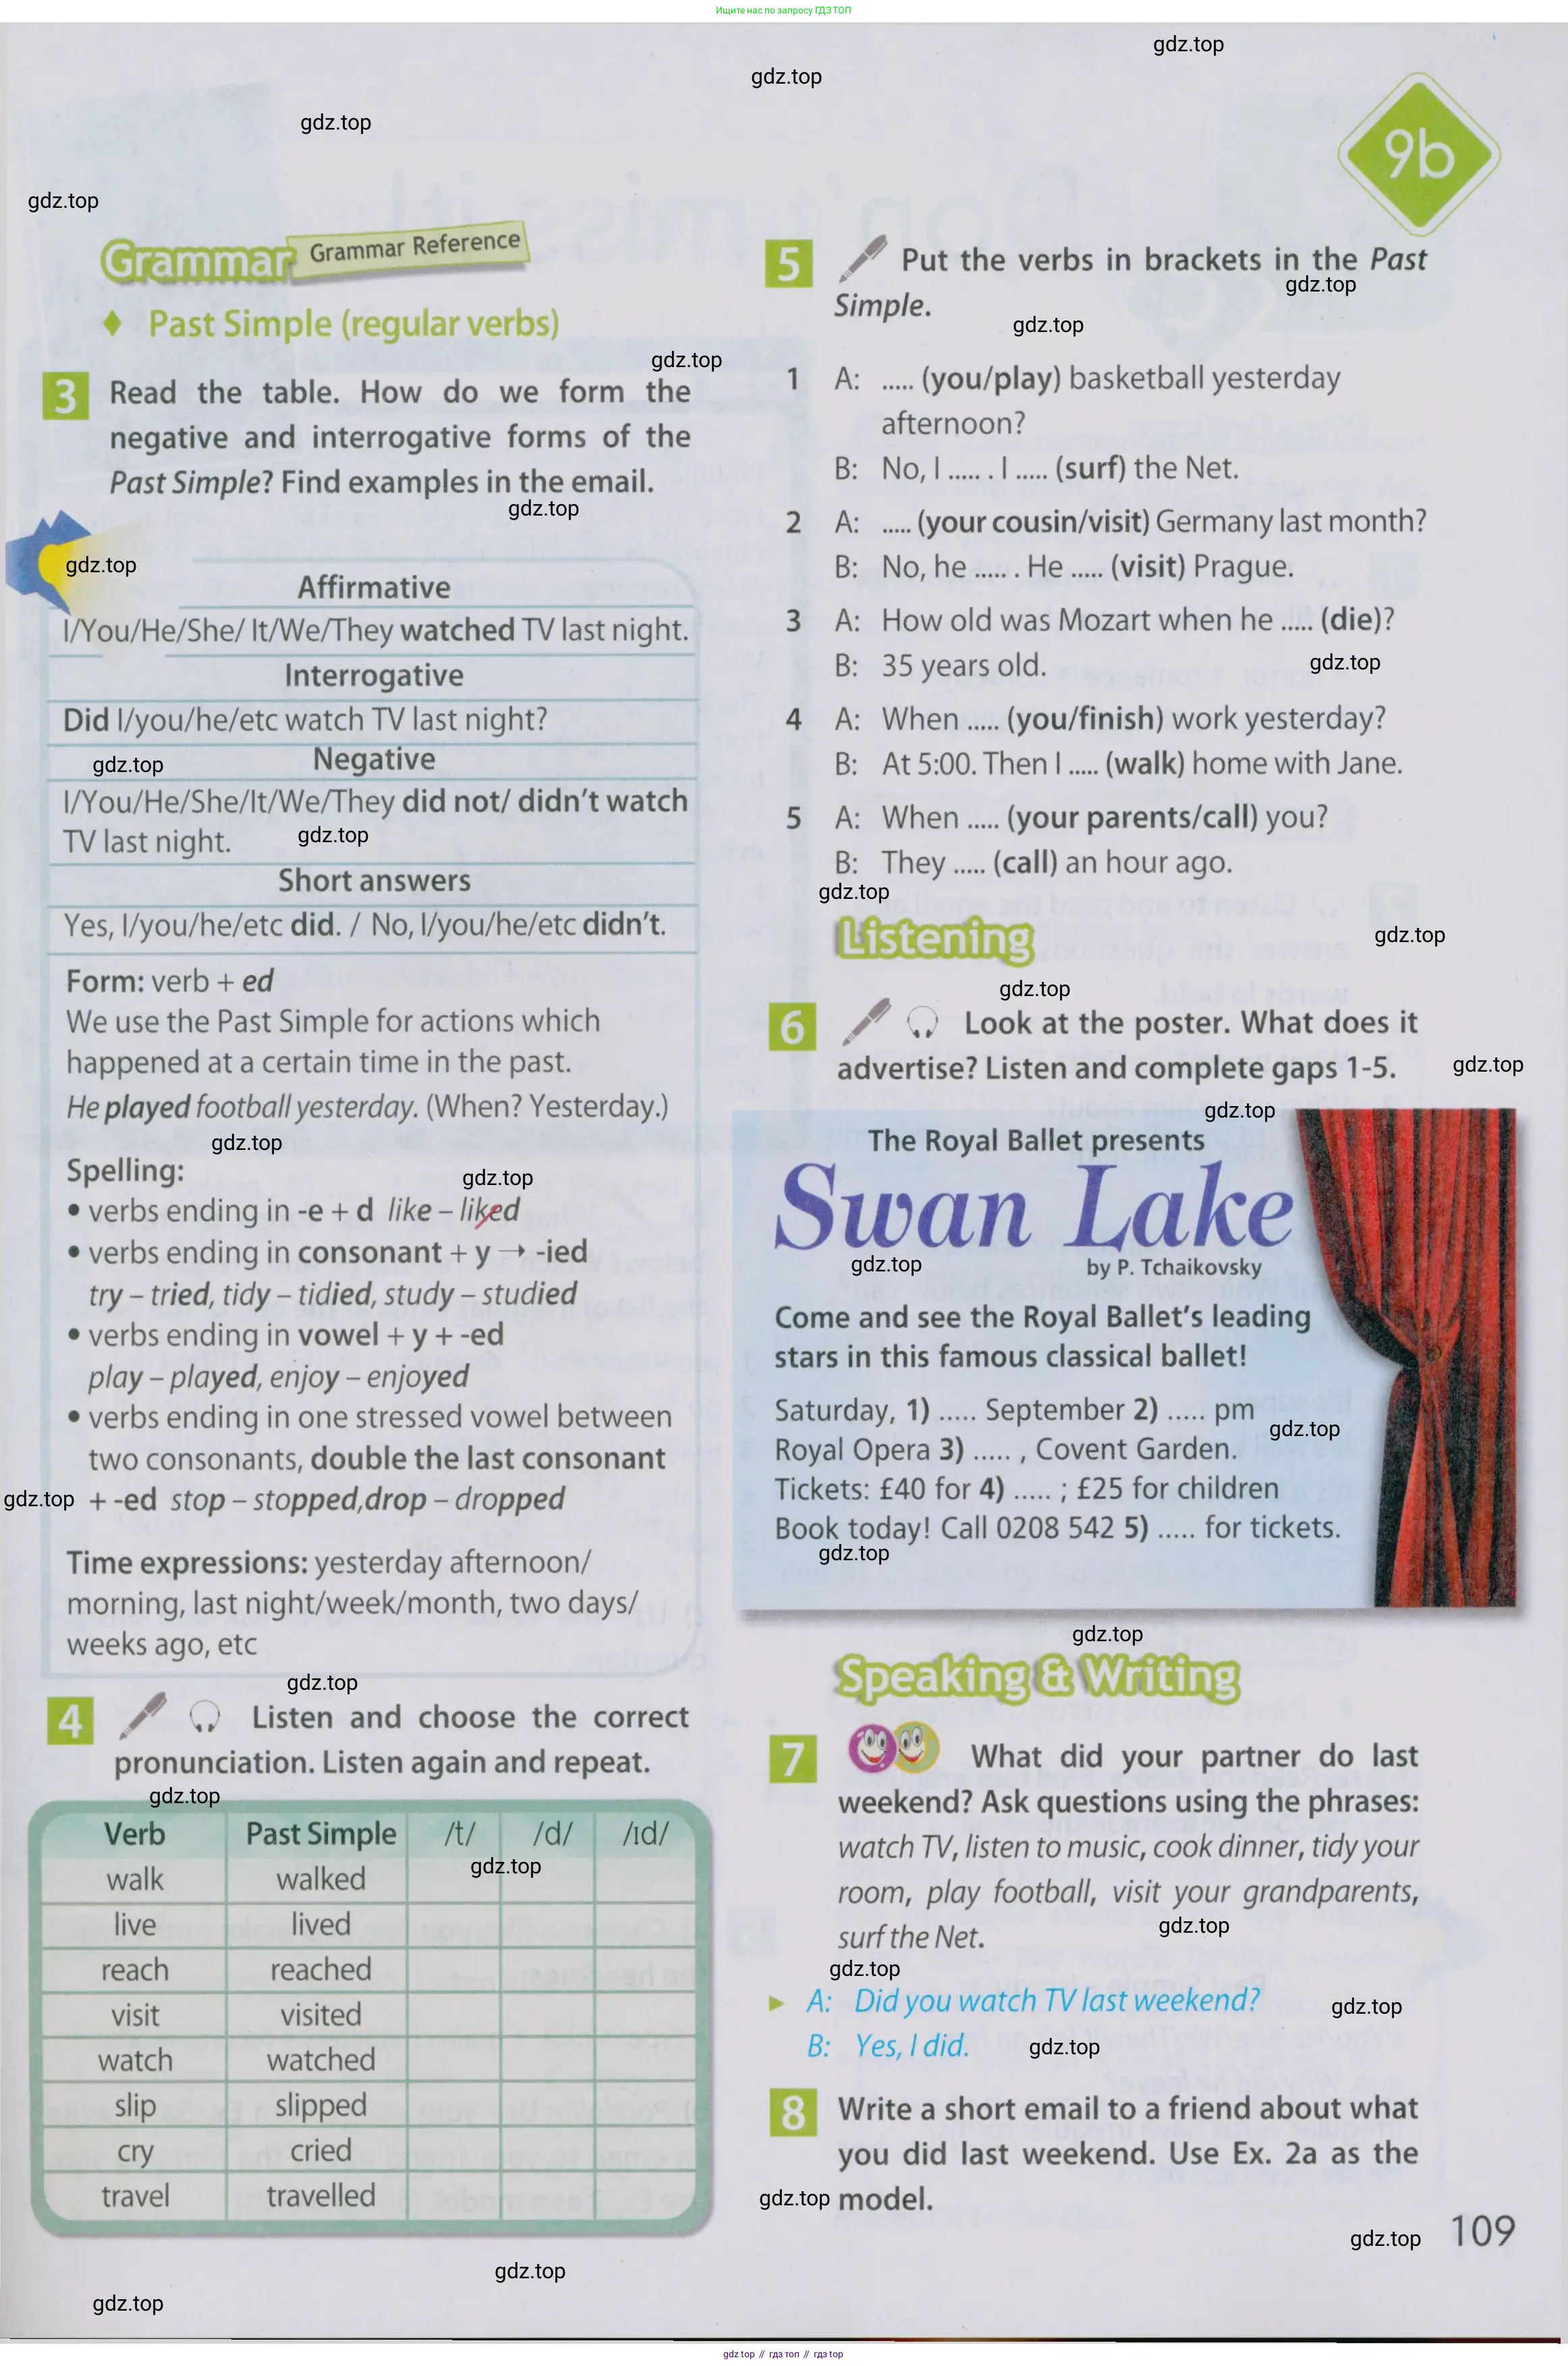 Ищите нас по запросу ГДЗ ТОП
gdz.top
gdz.top
gdz.top
gdz.top
9b
Grammar Grammar Reference
♦ Past Simple (regular verbs)
gdz.top
3 Read the table. How do we form the
negative and interrogative forms of the
Past Simple? Find examples in the email.
gdz.top
gdz.top
Affirmative
I/You/He/She/ It/We/They watched TV last night.
Interrogative
Did I/you/he/etc watch TV last night?
Negative
gdz.top
I/You/He/She/It/We/They did not/ didn't watch
TV last night.
gdz.top
Short answers
Yes, I/you/he/etc did. / No, I/you/he/etc didn't.
Form: verb + ed
We use the Past Simple for actions which
happened at a certain time in the past.
He played football yesterday. (When? Yesterday.)
gdz.top
Spelling:
gdz.top
• verbs ending in -e + d like – liked
• verbs ending in consonant + y → -ied
try – tried, tidy – tidied, study – studied
• verbs ending in vowel + y + -ed
play – played, enjoy – enjoyed
• verbs ending in one stressed vowel between
two consonants, double the last consonant
gdz.top
+ -ed stop – stopped,drop – dropped
Time expressions: yesterday afternoon/
morning, last night/week/month, two days/
weeks ago, etc
gdz.top
4 Listen and choose the correct
pronunciation. Listen again and repeat.
gdz.top
Verb Past Simple /t/ /d/ /ɪd/
gdz.top
walk walked
live lived
reach reached
visit visited
watch watched
slip slipped
cry cried
travel travelled
gdz.top
gdz.top
5 Put the verbs in brackets in the Past
gdz.top
Simple.
gdz.top
1 A: ..... (you/play) basketball yesterday
afternoon?
B: No, I ..... . I ..... (surf) the Net.
2 A: ..... (your cousin/visit) Germany last month?
B: No, he ..... . He ..... (visit) Prague.
3 A: How old was Mozart when he ..... (die)?
B: 35 years old.
gdz.top
4 A: When ..... (you/finish) work yesterday?
B: At 5:00. Then I ..... (walk) home with Jane.
5 A: When ..... (your parents/call) you?
B: They ..... (call) an hour ago.
gdz.top
Listening
gdz.top
gdz.top
6 Look at the poster. What does it
advertise? Listen and complete gaps 1-5.
gdz.top
gdz.top
The Royal Ballet presents
Swan Lake
gdz.top
by P. Tchaikovsky
Come and see the Royal Ballet's leading
stars in this famous classical ballet!
Saturday, 1) ..... September 2) ..... pm
gdz.top
Royal Opera 3) ..... , Covent Garden.
Tickets: £40 for 4) ..... ; £25 for children
Book today! Call 0208 542 5) ..... for tickets.
gdz.top
gdz.top
Speaking & Writing
7 What did your partner do last
weekend? Ask questions using the phrases:
watch TV, listen to music, cook dinner, tidy your
room, play football, visit your grandparents,
gdz.top
surf the Net.
gdz.top
► A: Did you watch TV last weekend?
gdz.top
B: Yes, I did.
gdz.top
8 Write a short email to a friend about what
you did last weekend. Use Ex. 2a as the
gdz.top
model.
gdz.top
109
gdz top // гдз топ // гдз top